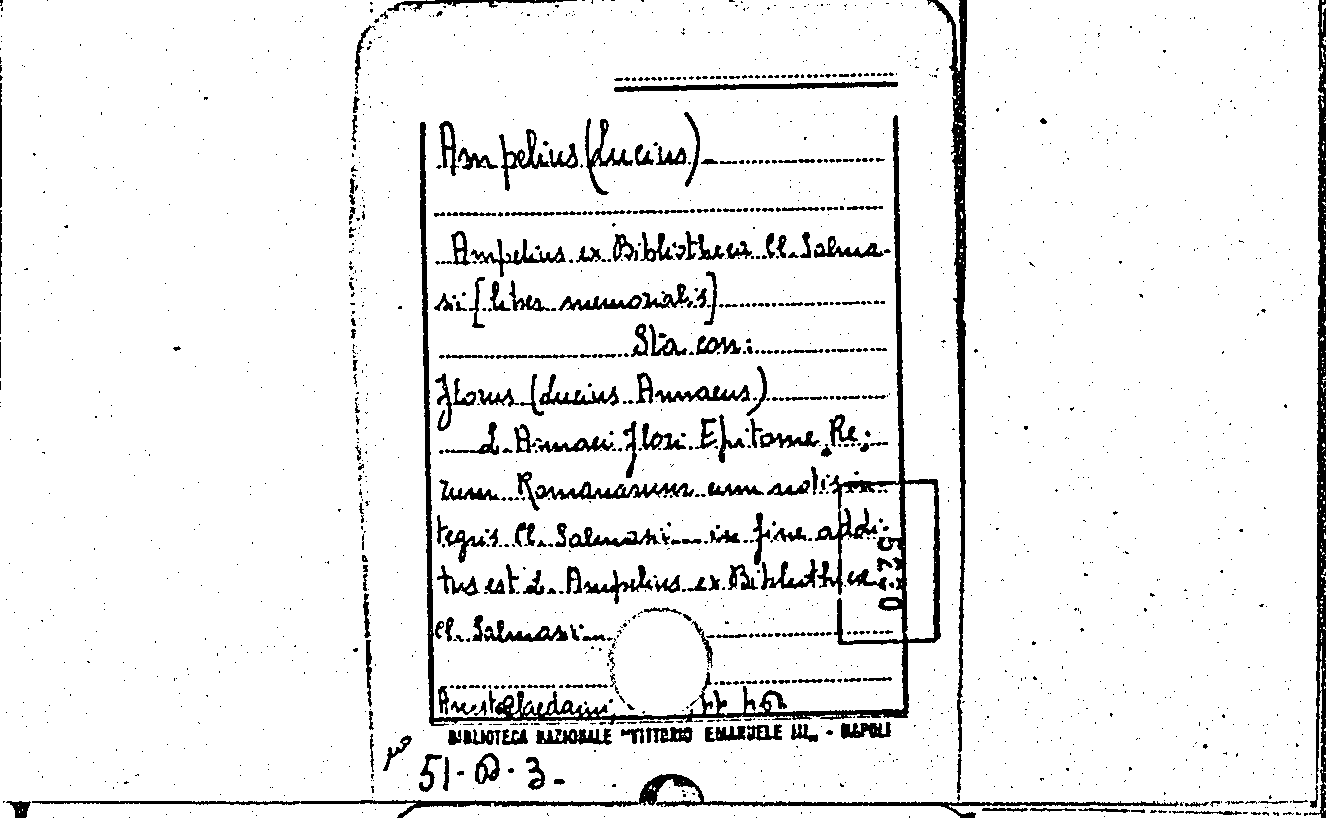 Ampelius (Lucius)
Ampelius ex Bibliotheca Cl. Salma-
sii [liber memorialis]
Sta con:
Florus (Lucius Annaeus)
L. Annaei Flori Epitome Re-
rum Romanarum cum notis in-
tegris Cl. Salmasi... in fine addi-
tus est L. Ampelius ex Bibliotheca
Cl. Salmasi...
BIBLIOTECA NAZIONALE "VITTORIO EMANUELE III" - NAPOLI
51-D-3-